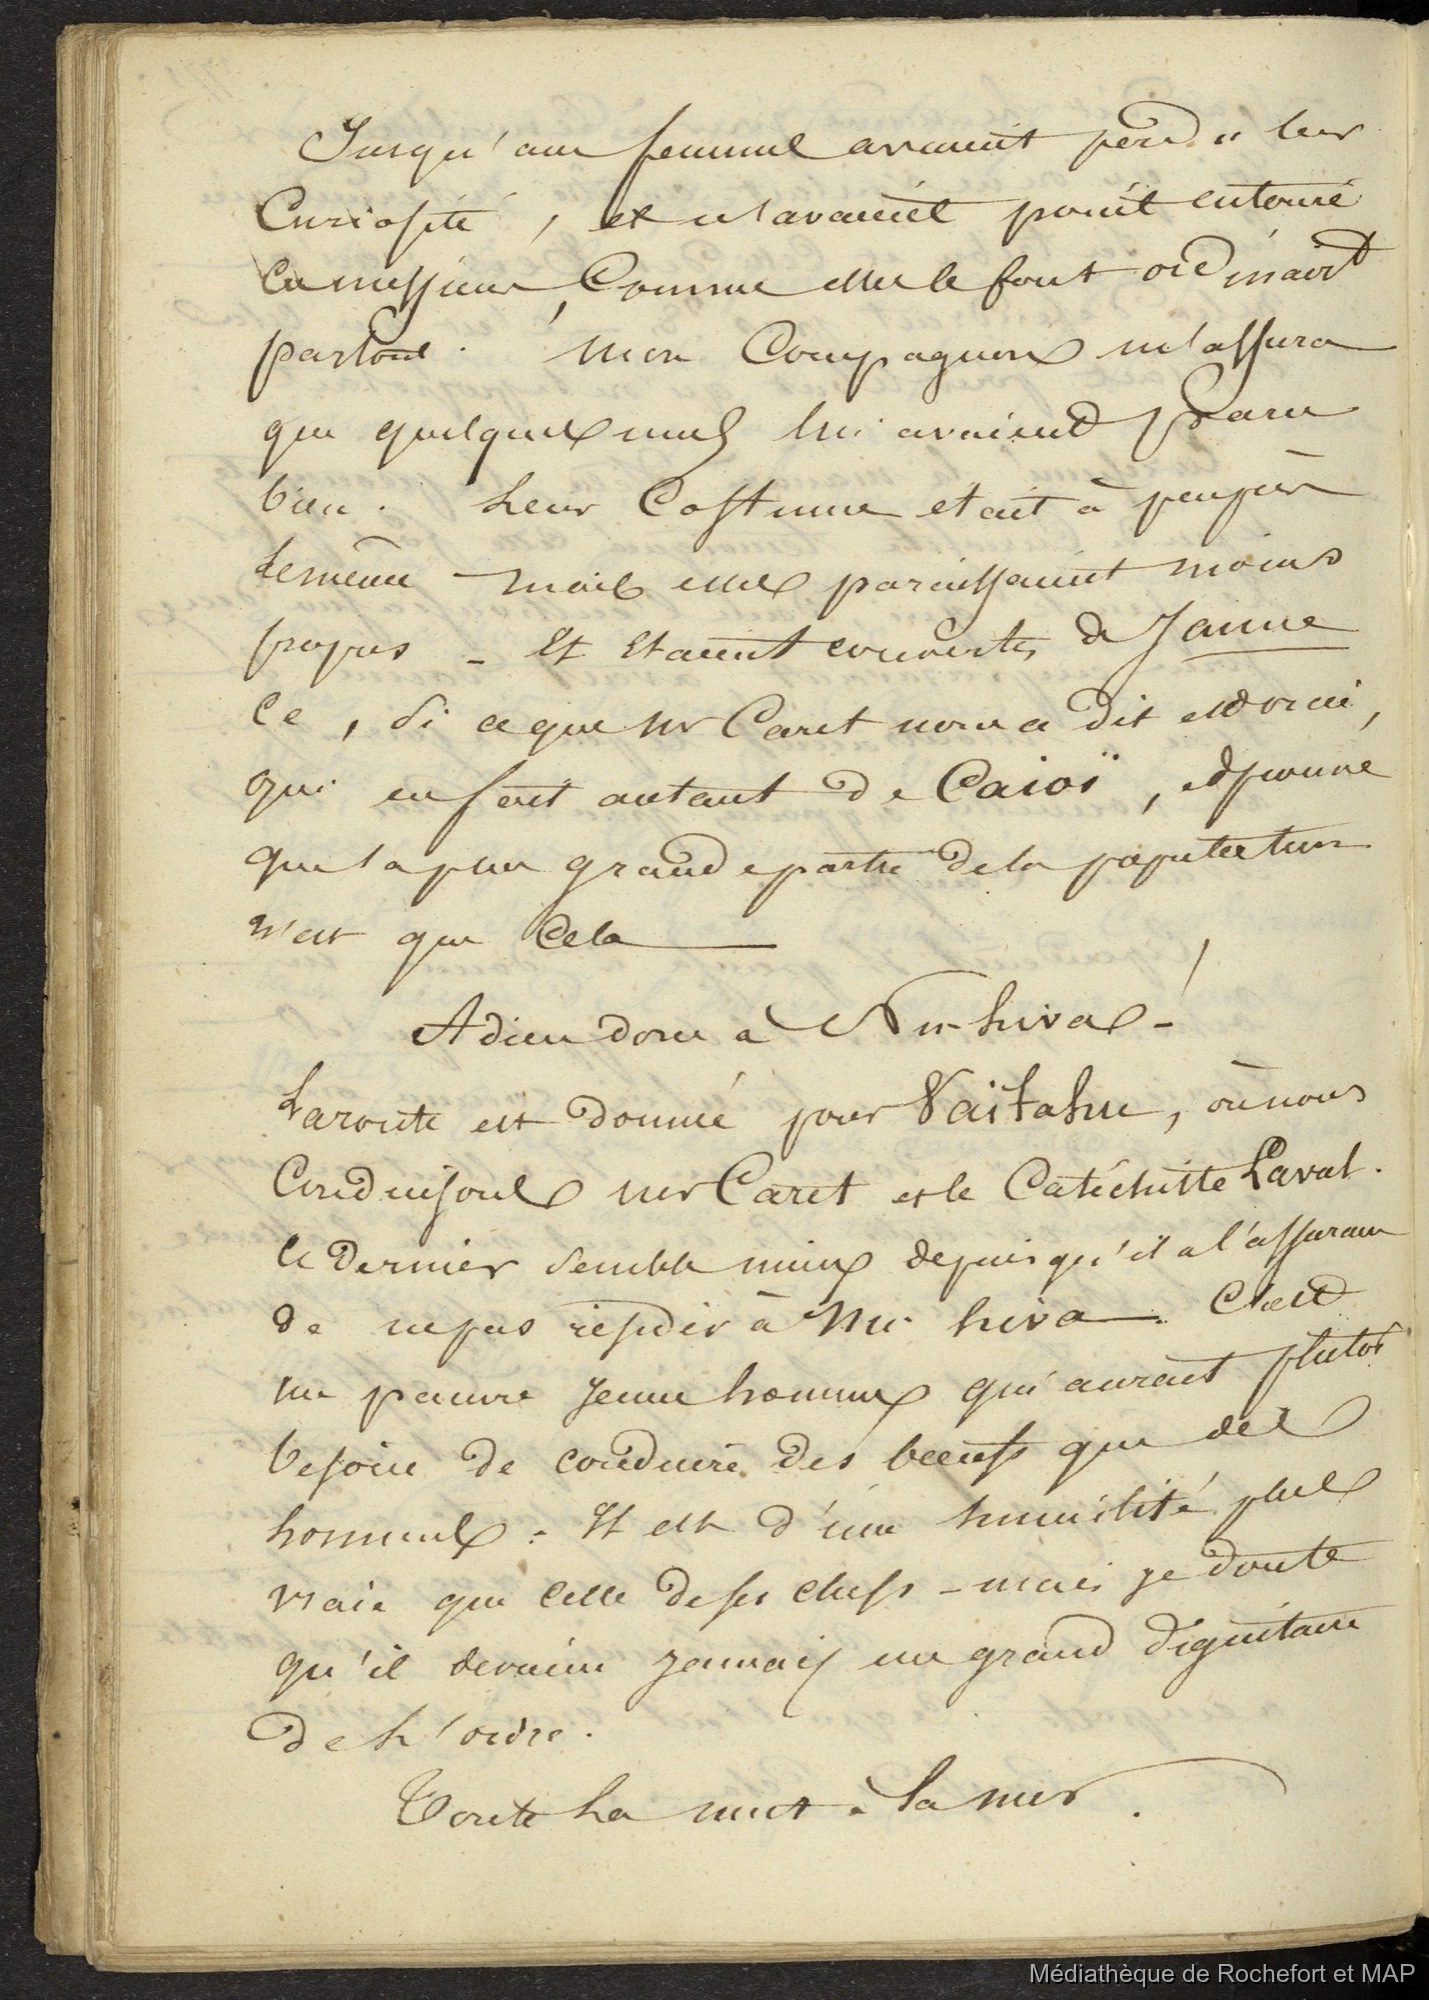 Jusqu'aux femmes avaient perdu leur
Curiosité, et n'avaient point entouré
ces messieurs, Comme elles le font ordinairt
partout. mon Compagnon m'assura
que quelques unes lui avaient paru
bien. Leur Costume etait à peuprès
le même mais elles paraissaient moins
propres - Et Etaient couvertes de Jaune
Ce, si ce que mr Caret nous a dit est vrai,
qui en fait autant de Caioï, et prouve
que la plus grande partie de la population
n'est que Cela
Adieu donc à Nu-hiva - !
La route est donnée pour Vaïtahu, où nous
Conduisons mr Caret et le Catéchiste Laval.
Ce Dernier semble mieux depuis qu'il a l'assurance
de ne pas résider à Nu-hiva. C'est
un pauvre jeune homme qui aurait plutot
besoin de conduire des boeufs que des
hommes. Il est d'une humilité plus
vraie que Celle de ses chefs - mais je doute
qu'il devienne jamais un grand dignitaire
de L'ordre.
Toute La nuit à La mer.
Médiathèque de Rochefort et MAP